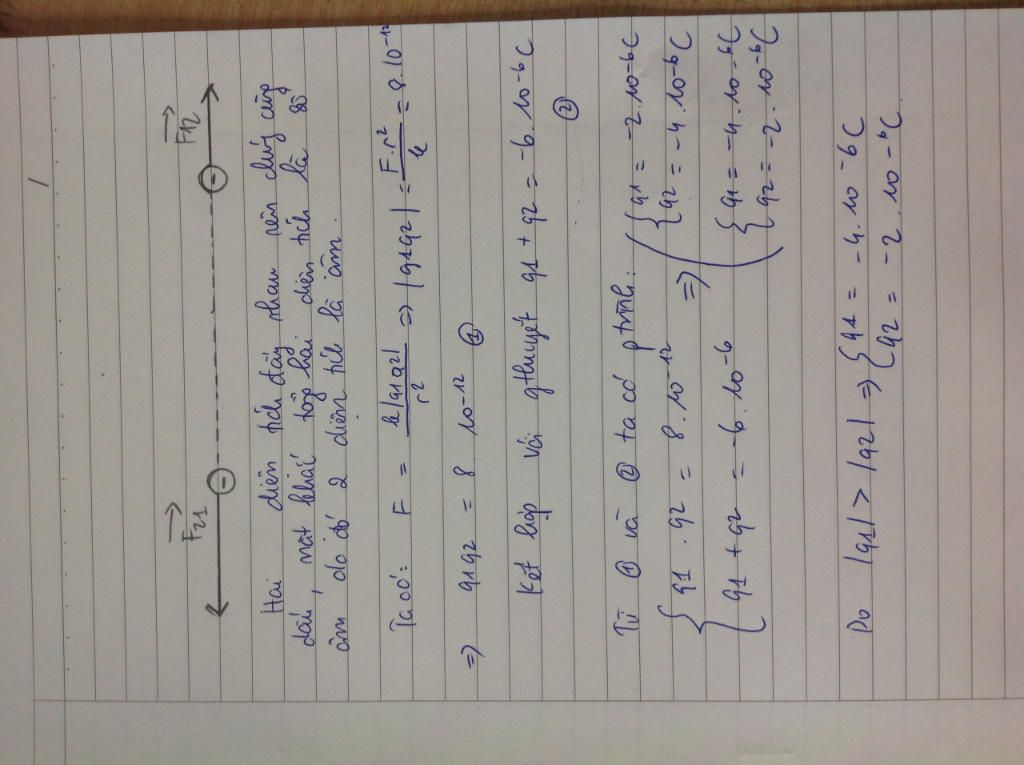 F21 F12
Hai điện tích đẩy nhau nên chúng cùng
dấu, mặt khác tổng hai điện tích là số
âm do đó 2 điện tích là âm.
Ta có: F = k|q1q2| / r² => |q1q2| = F.r² / k = 8.10-12
=> q1q2 = 8 10-12 ①
Kết hợp với gthuyết q1 + q2 = -6.10-6C
②
Từ ① và ② ta có ptrình:
{ q1 . q2 = 8.10-12 => ( { q1 = -2.10-6C
q2 = -4.10-6C
{ q1 + q2 = -6.10-6 { q1 = -4.10-6C
q2 = -2.10-6C
Do |q1| > |q2| => { q1 = -4.10-6C
q2 = -2.10-6C